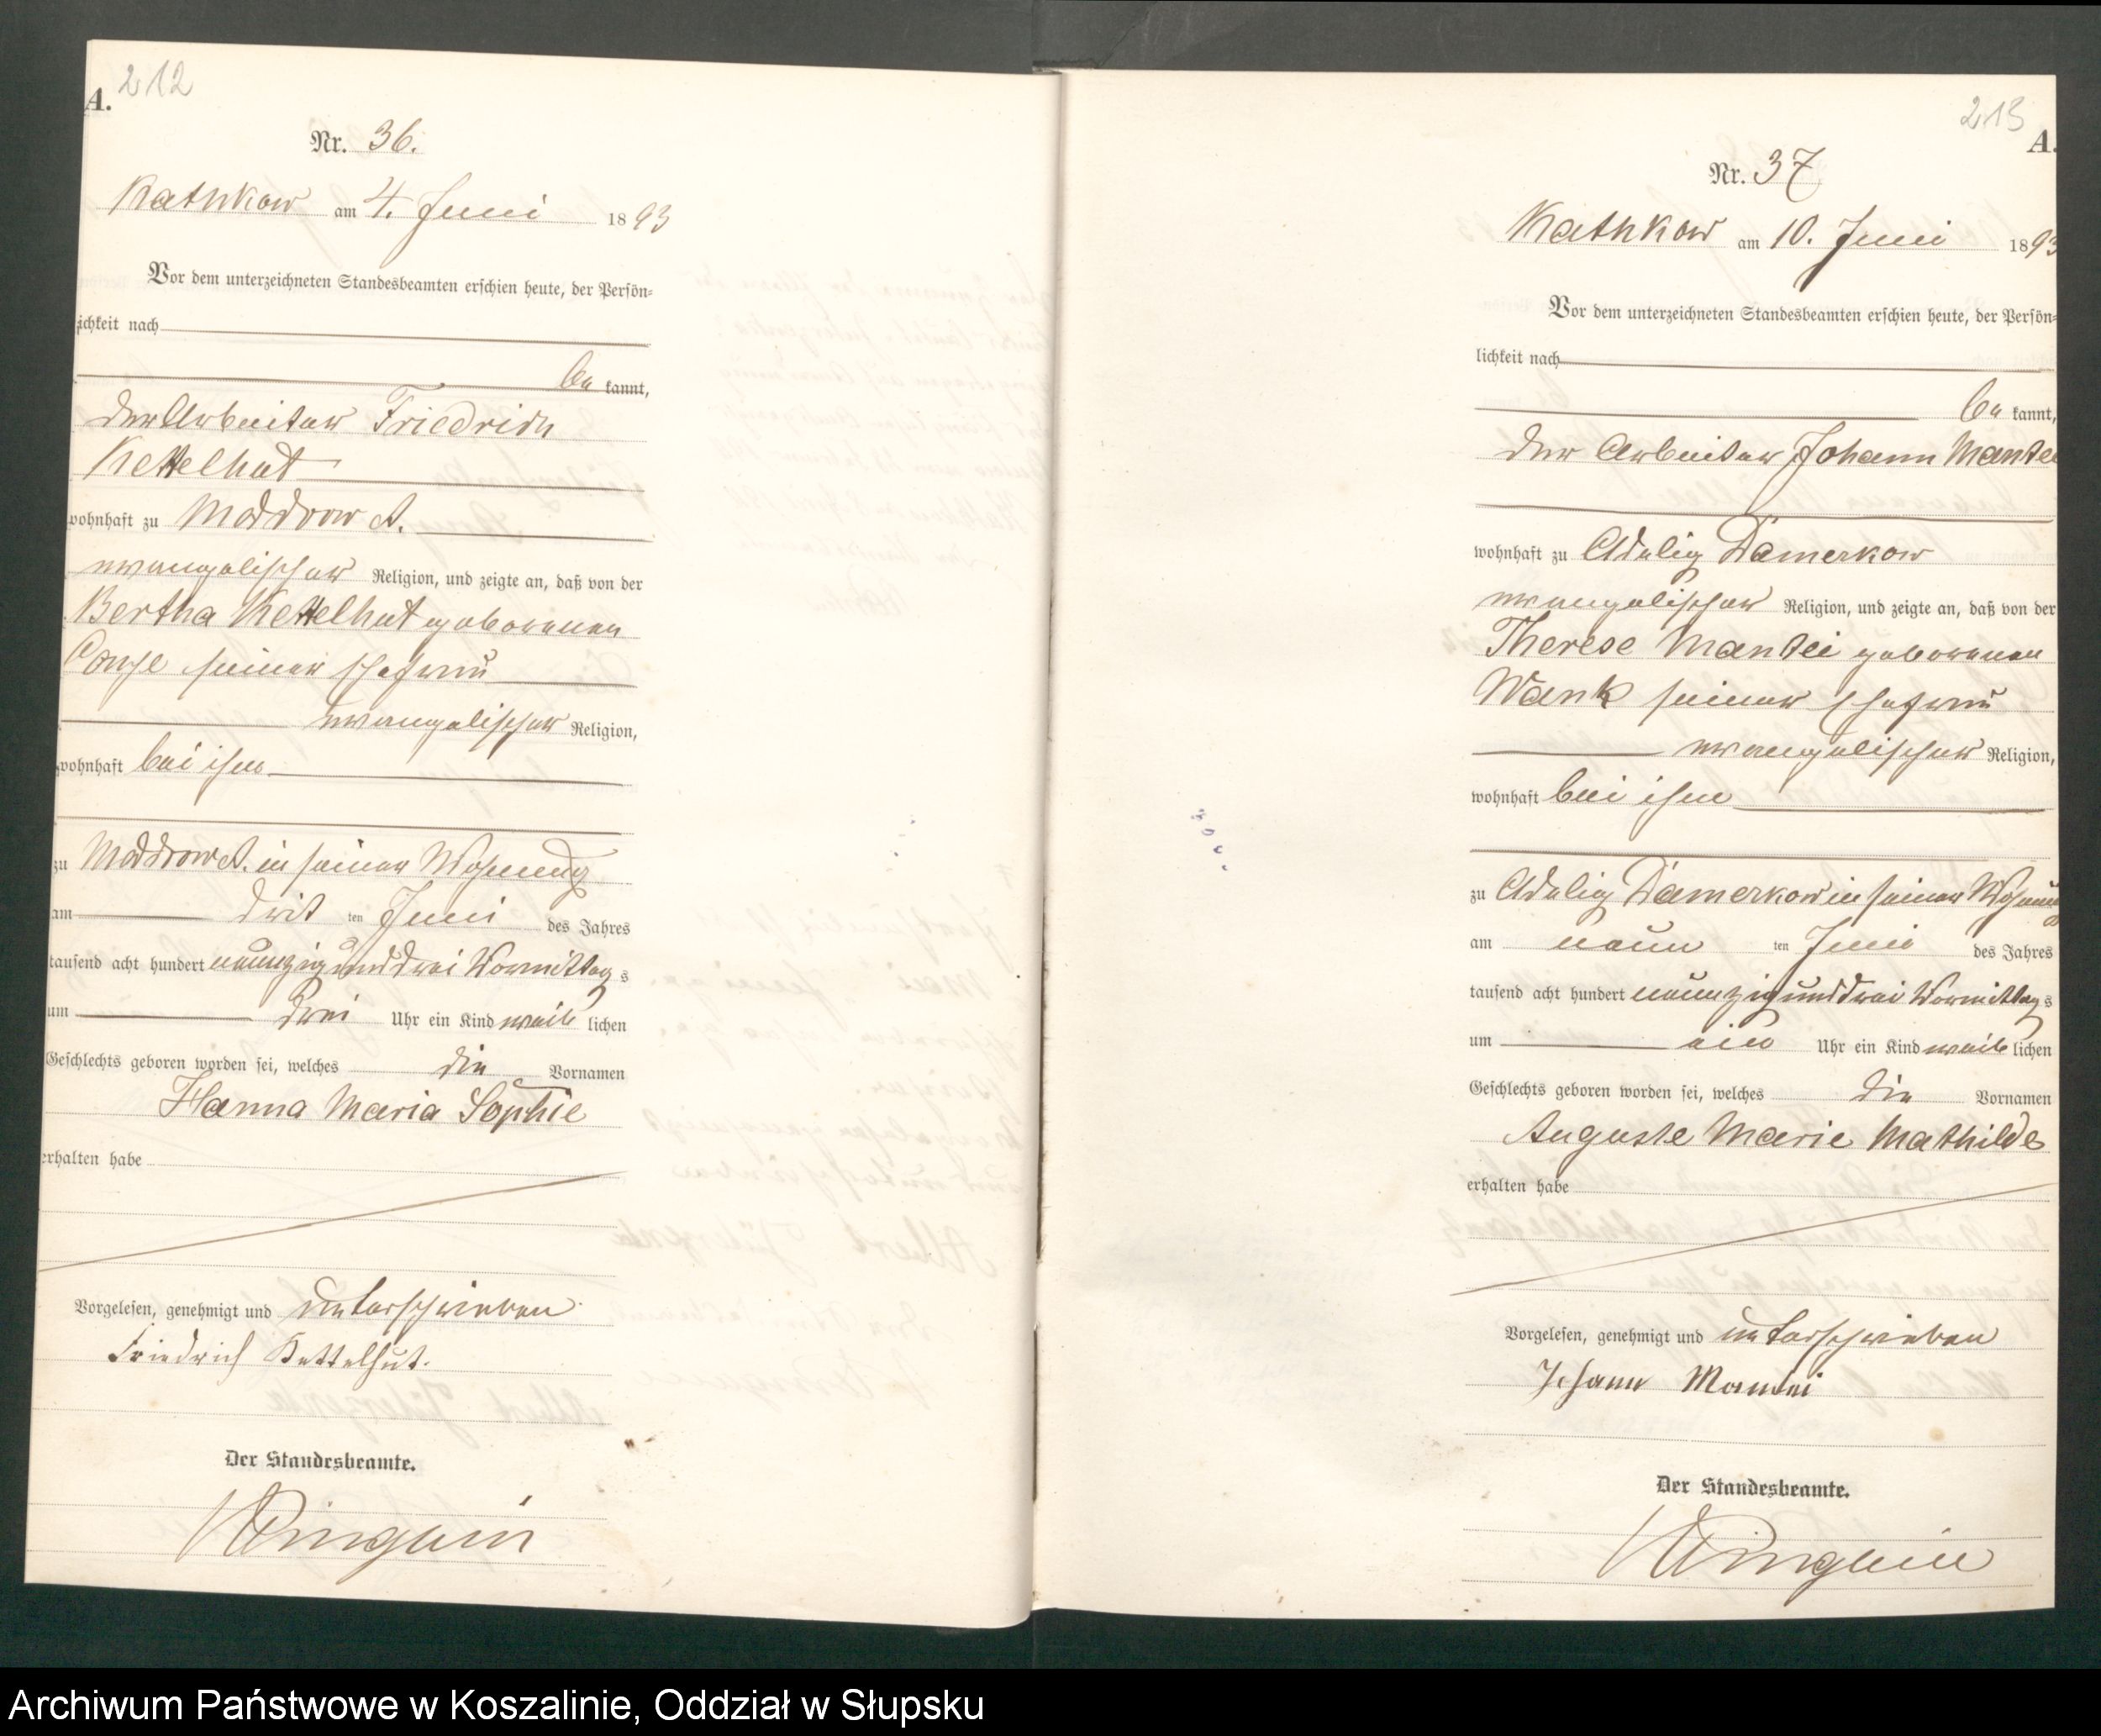 212
A.
Nr. 36.
Kathkow am 4. Juni 1893
Vor dem unterzeichneten Standesbeamten erschien heute, der Persön=
lichkeit nach
be kannt,
der Arbeiter Friedrich
Kettelhut
wohnhaft zu Moddrow A.
evangelischer Religion, und zeigte an, daß von der
Bertha Kettelhut geborenen
seiner Ehefrau
evangelischer Religion,
wohnhaft bei ihm
zu Moddrow A. in seiner Wohnung
am dritten Juni des Jahres
tausend acht hundert neunzig und drei Vormittags
um drei Uhr ein Kind weiblichen
Geschlechts geboren worden sei, welches die Vornamen
Hanna Maria Sophie
erhalten habe
Vorgelesen, genehmigt und unterschrieben
Friedrich Kettelhut.
Der Standesbeamte.
213
A.
Nr. 37
Kathkow am 10. Juni 1893
Vor dem unterzeichneten Standesbeamten erschien heute, der Persön=
lichkeit nach
be kannt,
der Arbeiter Johann Mantei
wohnhaft zu Adelig Damerkow
evangelischer Religion, und zeigte an, daß von der
Therese Mantei geborenen
Wank seiner Ehefrau
evangelischer Religion,
wohnhaft bei ihm
zu Adelig Damerkow in seiner Wohnung
am neunten Juni des Jahres
tausend acht hundert neunzig und drei Vormittags
um ein Uhr ein Kind weiblichen
Geschlechts geboren worden sei, welches die Vornamen
Auguste Marie Mathilde
erhalten habe
Vorgelesen, genehmigt und unterschrieben
Johann Mantei
Der Standesbeamte.
Archiwum Państwowe w Koszalinie, Oddział w Słupsku